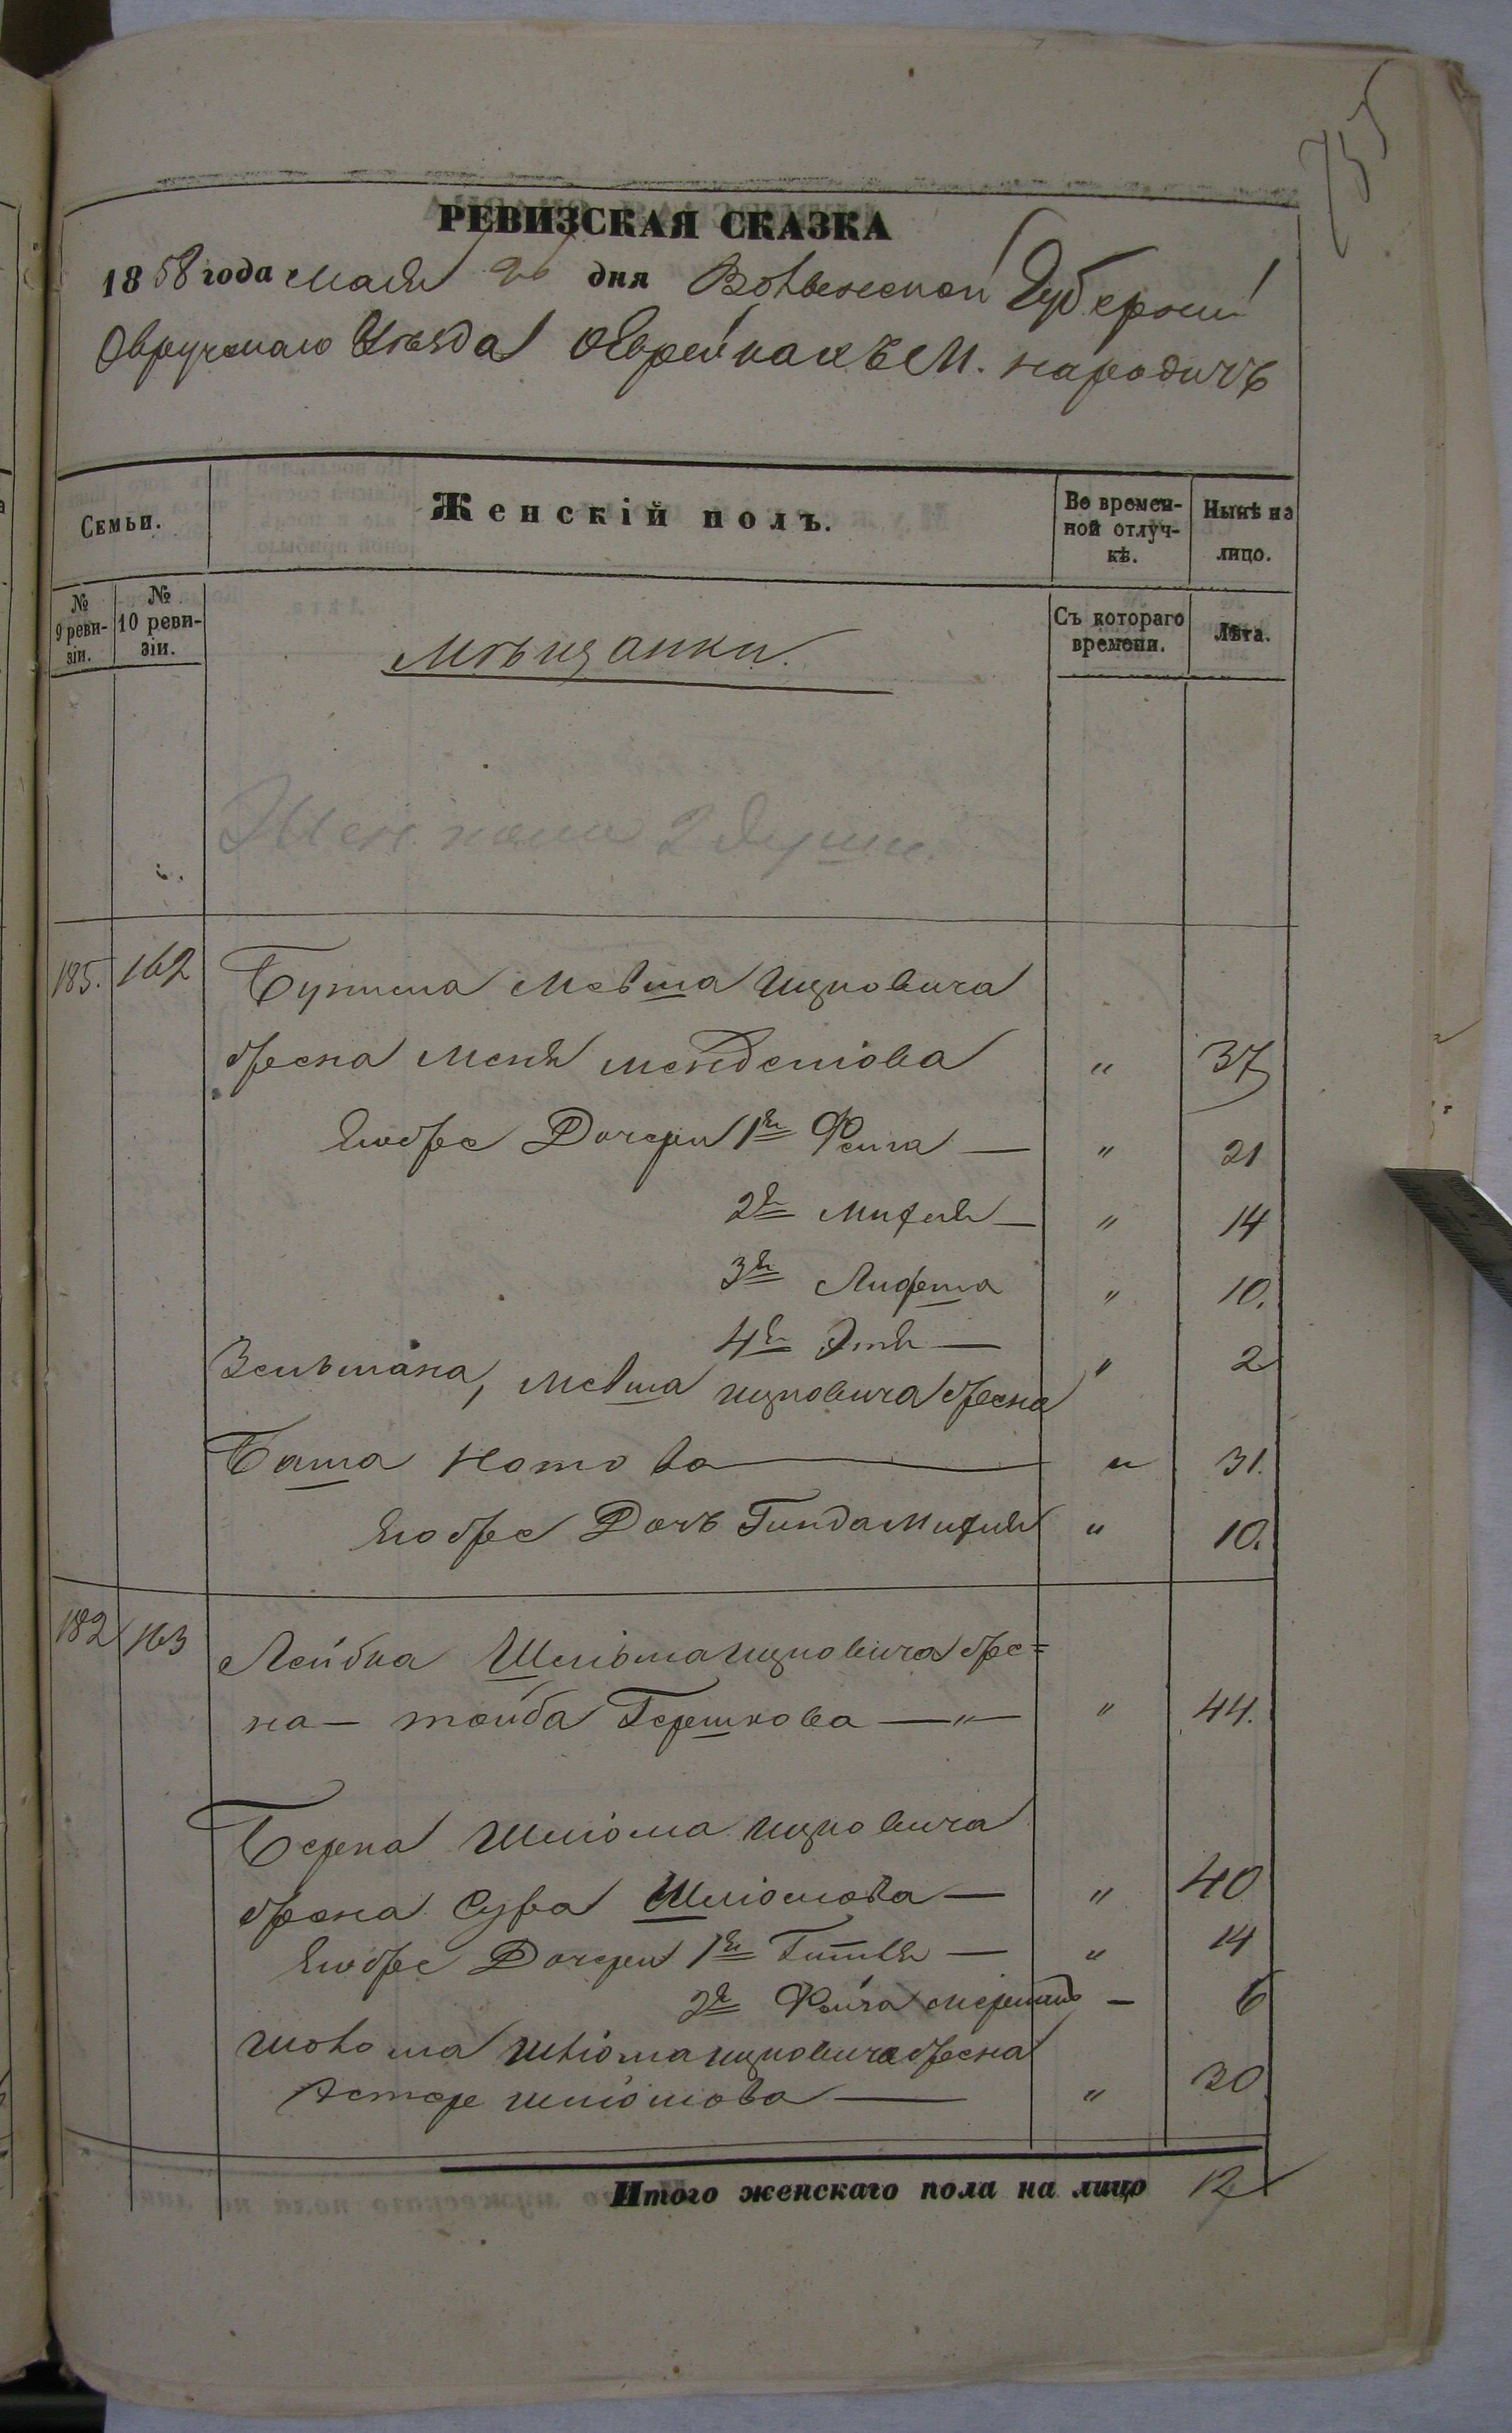 755
РЕВИЗСКАЯ СКАЗКА
1858 года мая 26 дня Волынской Губерніи
Овручскаго Уѣзда о Еврейкахъ М. Народичъ
Семьи.
Женскій полъ.
Во времен-
ной отлуч-
кѣ.
Нынѣ на
лицо.
№
9 реви-
зіи.
№
10 реви-
зіи.
Мѣщанки.
Съ котораго
времени.
Лѣта.
Жен. пола 2 души.
185. 162 Мовша Ицковича
жена Меня Менделіова " 37
Егоже Дочери 1я Фейга — " 21
2я — " 14
3я " 10.
4я Этя — " 2
Зельмана, Мовша Ицковича жена
Баша Нотова — " 31.
Егоже Дочь Гинда " 10.
182 163 Лейбка Шліома Ицковича же=
на — Тойба Гершкова — " — " 44.
Берка Шліома Ицковича
жена Сура Шліомова — " 40
Егоже Дочери 1я Гитля — " 14
2я Фейга — 6
Шліома Ицковича жена
Эстер Шліомова — " 30
Итого женскаго пола на лицо 12